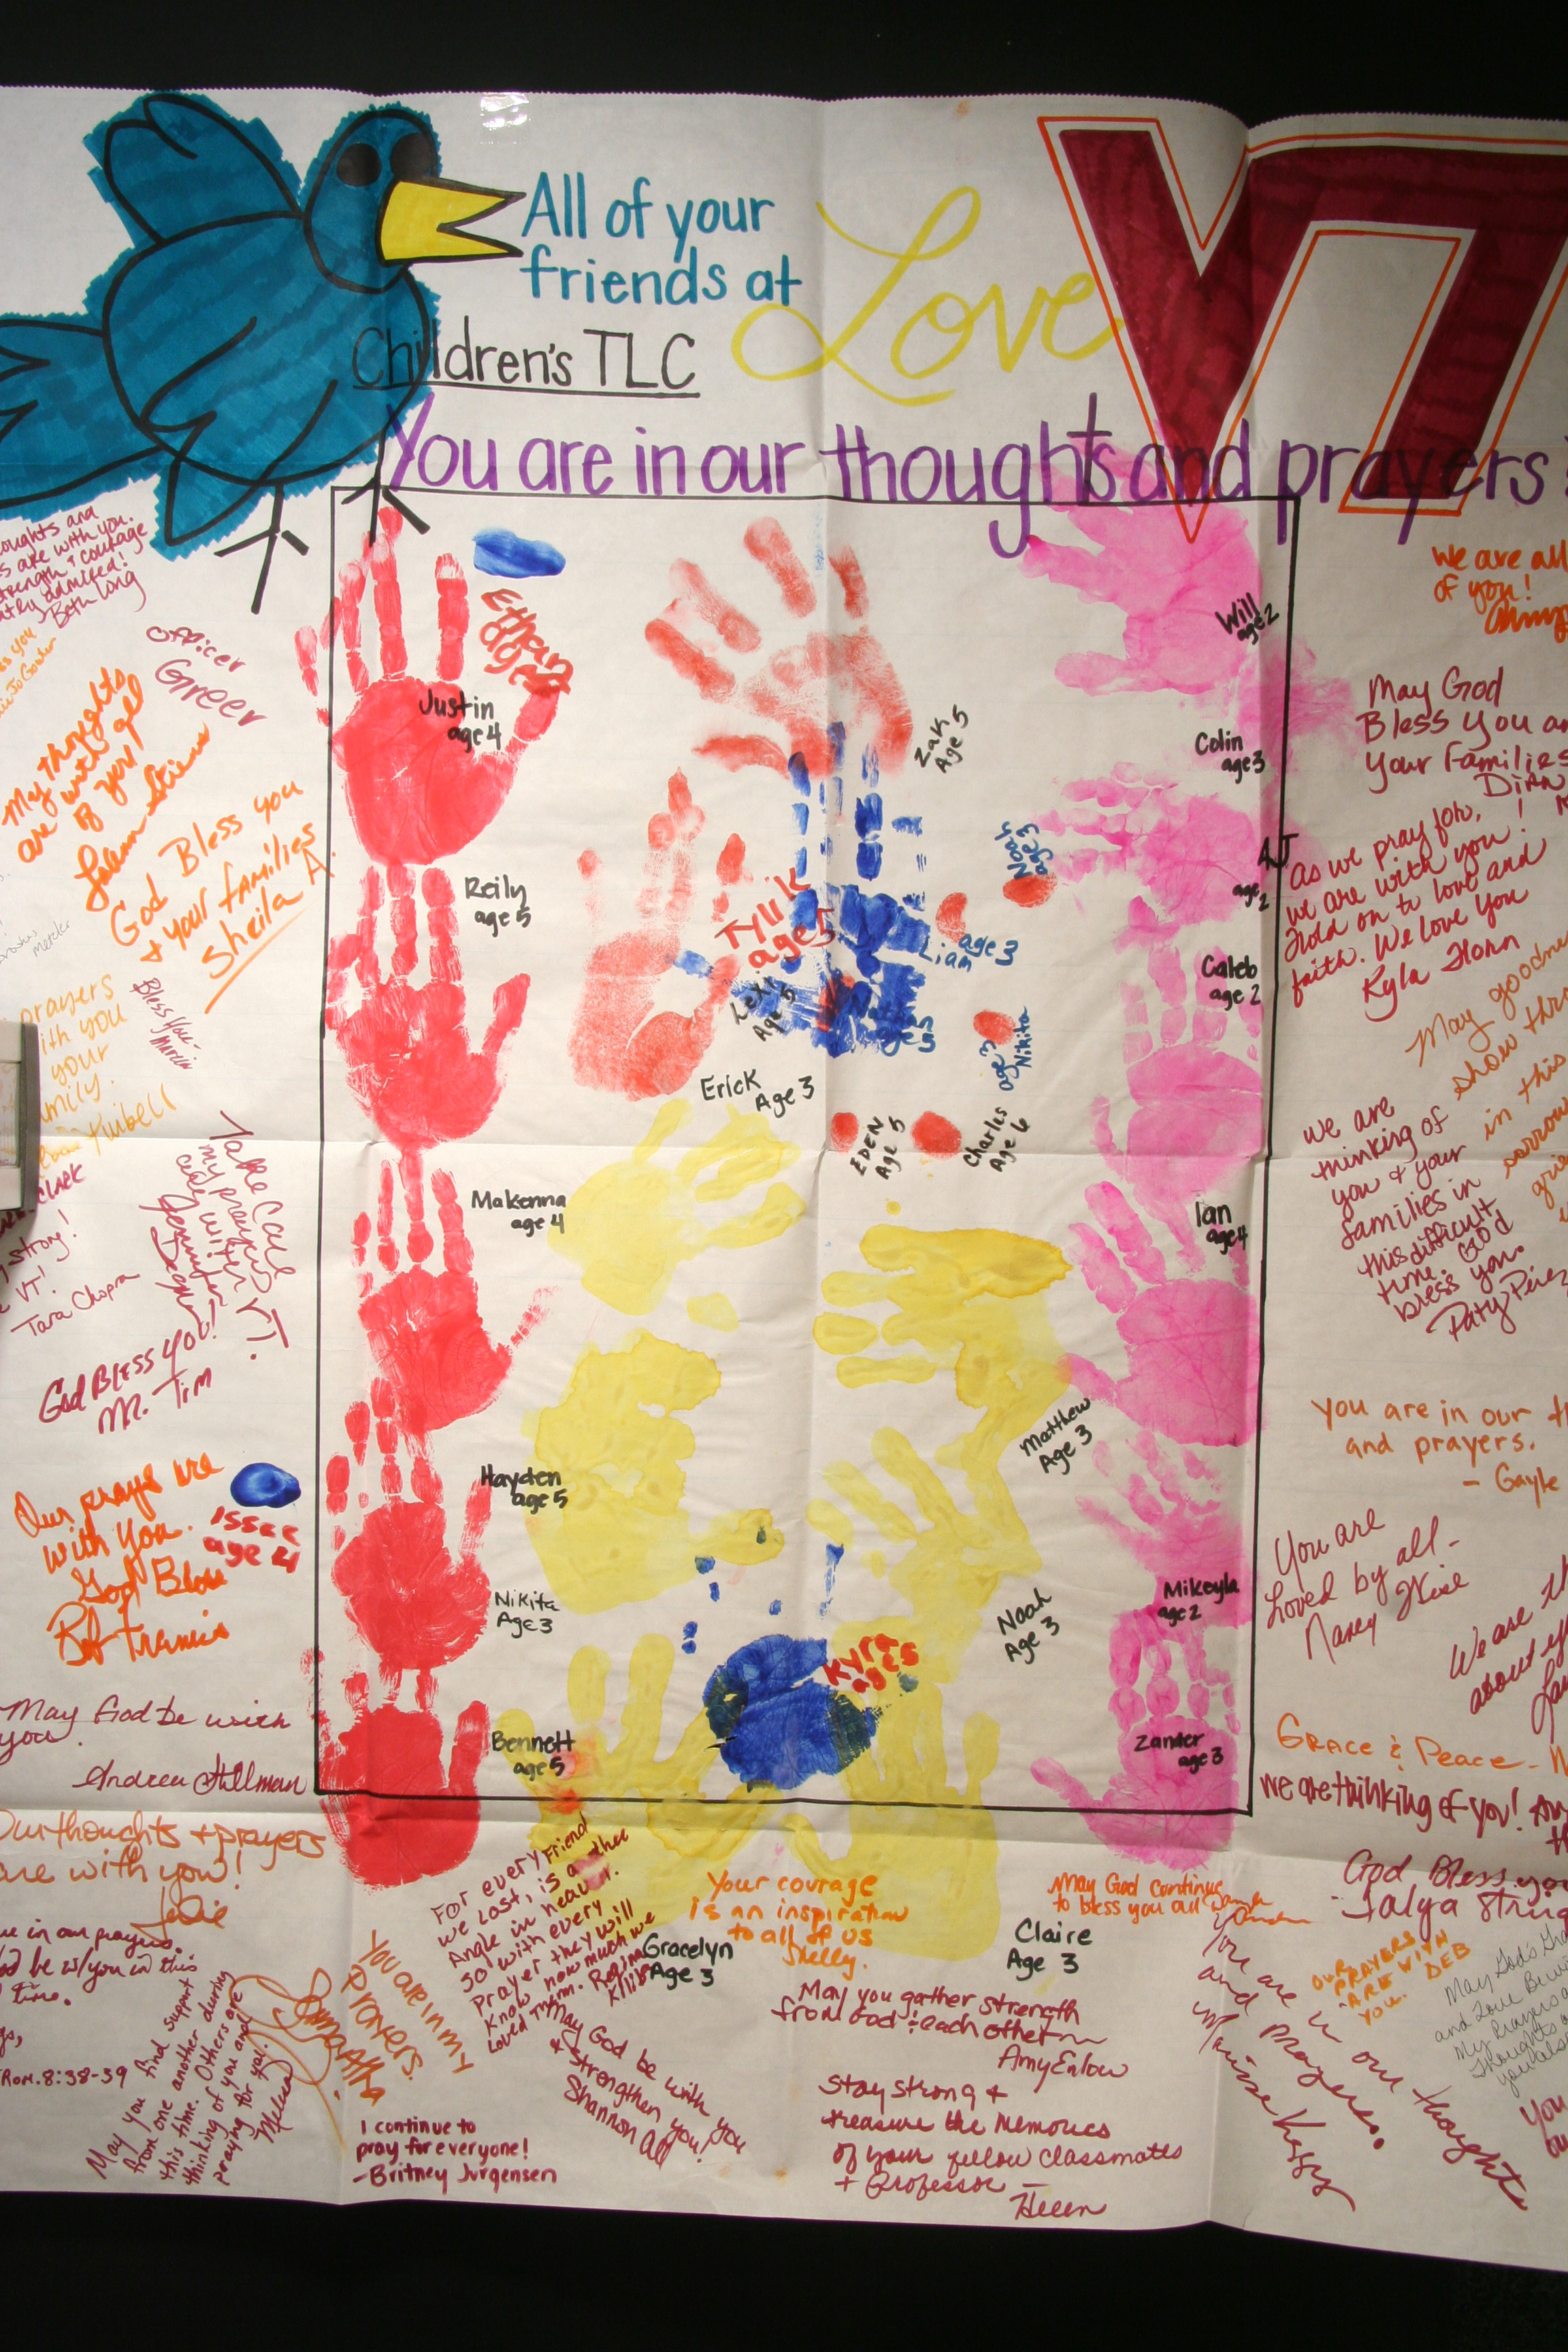 All of your
friends at
Children's TLC
Love
VT
You are in our thoughts and prayers
thoughts and
are with you.
strength & courage
admired!
Beth Long
Officer
Greer
My thoughts
are with all
of you!
God Bless you
+ your families
Sheila A.
prayers
with you
your
Bless You -
Take Care
my prayers
are with
VT.
strong!
VT!
Tara Chopra
God Bless You!
Mr. Tim
Our prayers are
with you.
God Bless
Bob Francis
Issac
age 4
May God be with
you.
Andrea Hillman
Our thoughts + prayers
are with you!
Julie
in our prayers.
be w/you in this
time.
Rom. 8:38-39
May you find support
from one another during
this time. Others are
thinking of you and
praying for you.
Melissa
You are in my
prayers!
I continue to
pray for everyone!
-Britney Jurgensen
Ethan
age
Justin
age 4
Reily
age 5
Makenna
age 4
Hayden
age 5
Nikita
Age 3
Bennett
age 5
Zak
Age 5
Tylik
age 5
Lexi
Age 5
Erick
Age 3
Noah
age 3
Liam
age 3
Nikita
age 3
EDEN
Age 5
Charles
Age 6
Matthew
Age 3
Noah
Age 3
Kyra
age 5
Will
age 2
Colin
age 3
AJ
age 2
Caleb
age 2
Ian
age 4
Mikayla
age 2
Zander
age 3
Gracelyn
Age 3
Claire
Age 3
For every Friend
we Lost, is a nother
Angle in heaven.
So with every
prayer they will
know how much we
Loved Them. Regina
Your courage
is an inspiration
to all of us
Shelly.
May God be with you
& strengthen you!
Shannon
May God continue
to bless you all
May you gather strength
from God & each other
Amy Enlow
Stay strong +
treasure the memories
of your fellow classmates
+ Professor —
Helen
We are all
of you!
May God
Bless You
Your Families
As we pray for,
we are with you!
Hold on to love and
faith. We love you
Kyla Horn
May goodness
show
in this
sorrow
we are
thinking of
you & your
families in
this difficult
time. God
bless you.
Paty Perez
You are in our
and prayers.
- Gayle
You are
Loved by all -
Nancy
We are
about
Grace & Peace -
We are thinking of you!
God Bless you
OUR
PRAYERS
ARE WITH
YOU. DEB
May God's
and Love Be with
My Prayers
Thoughts
You are in our thoughts
and prayers.